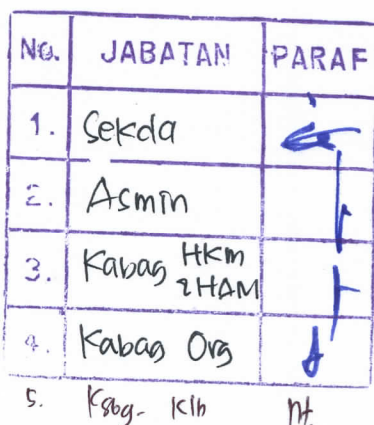 No. JABATAN PARAF
1. Sekda
2. Asmin
3. Kabag HKM
& HAM
4. Kabag Org
5. Ksbg- Klb